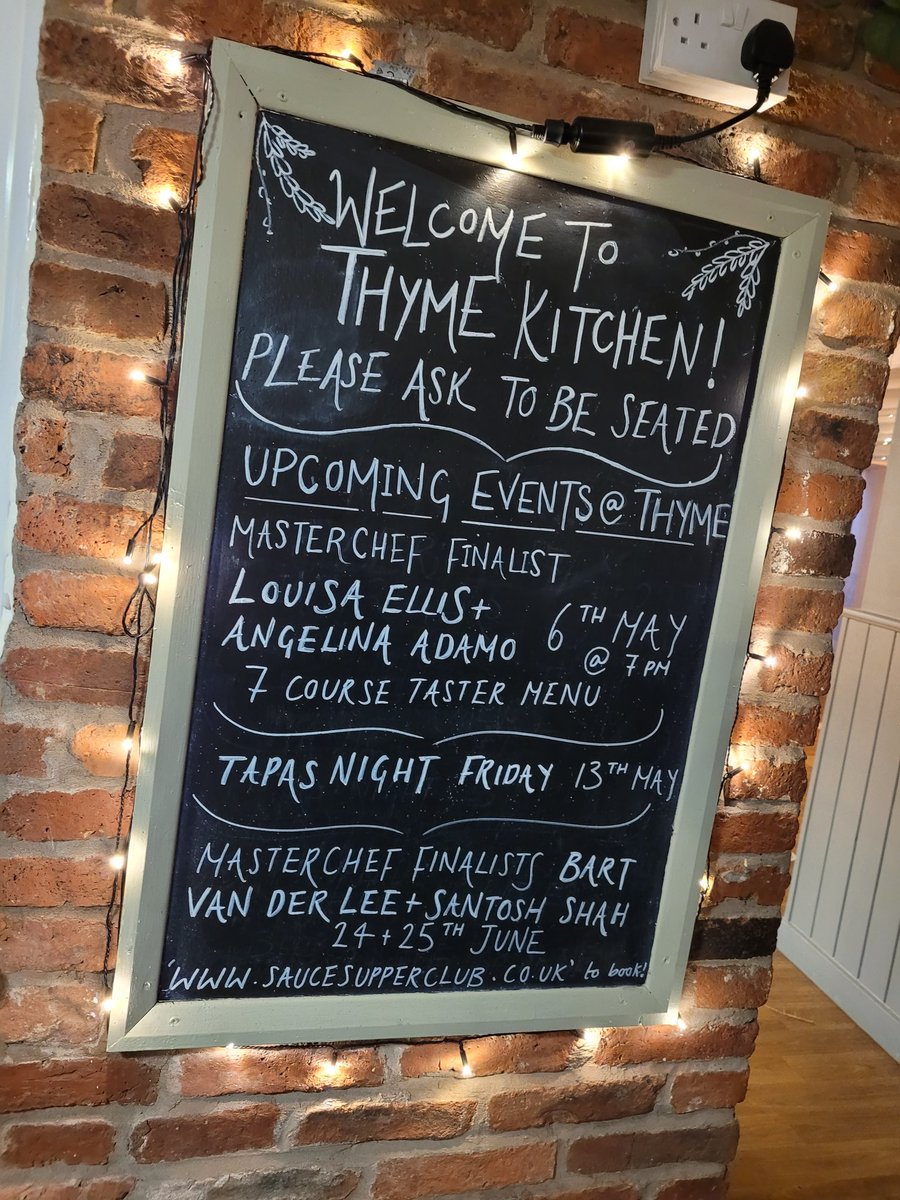 WELCOME TO
THYME KITCHEN!
PLEASE ASK TO BE SEATED
UPCOMING EVENTS @ THYME
MASTERCHEF FINALIST
LOUISA ELLIS +
ANGELINA ADAMO
6TH MAY
@ 7PM
7 COURSE TASTER MENU
TAPAS NIGHT FRIDAY 13TH MAY
MASTERCHEF FINALISTS BART
VAN DER LEE + SANTOSH SHAH
24 + 25TH JUNE
'WWW.SAUCESUPPERCLUB.CO.UK' to book!